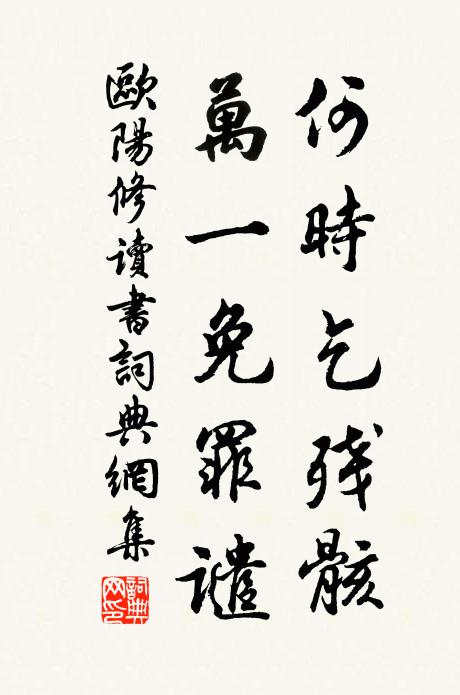 何時乞残骸
萬一免罪譴
歐陽修讀書詞典網集
詞典網印